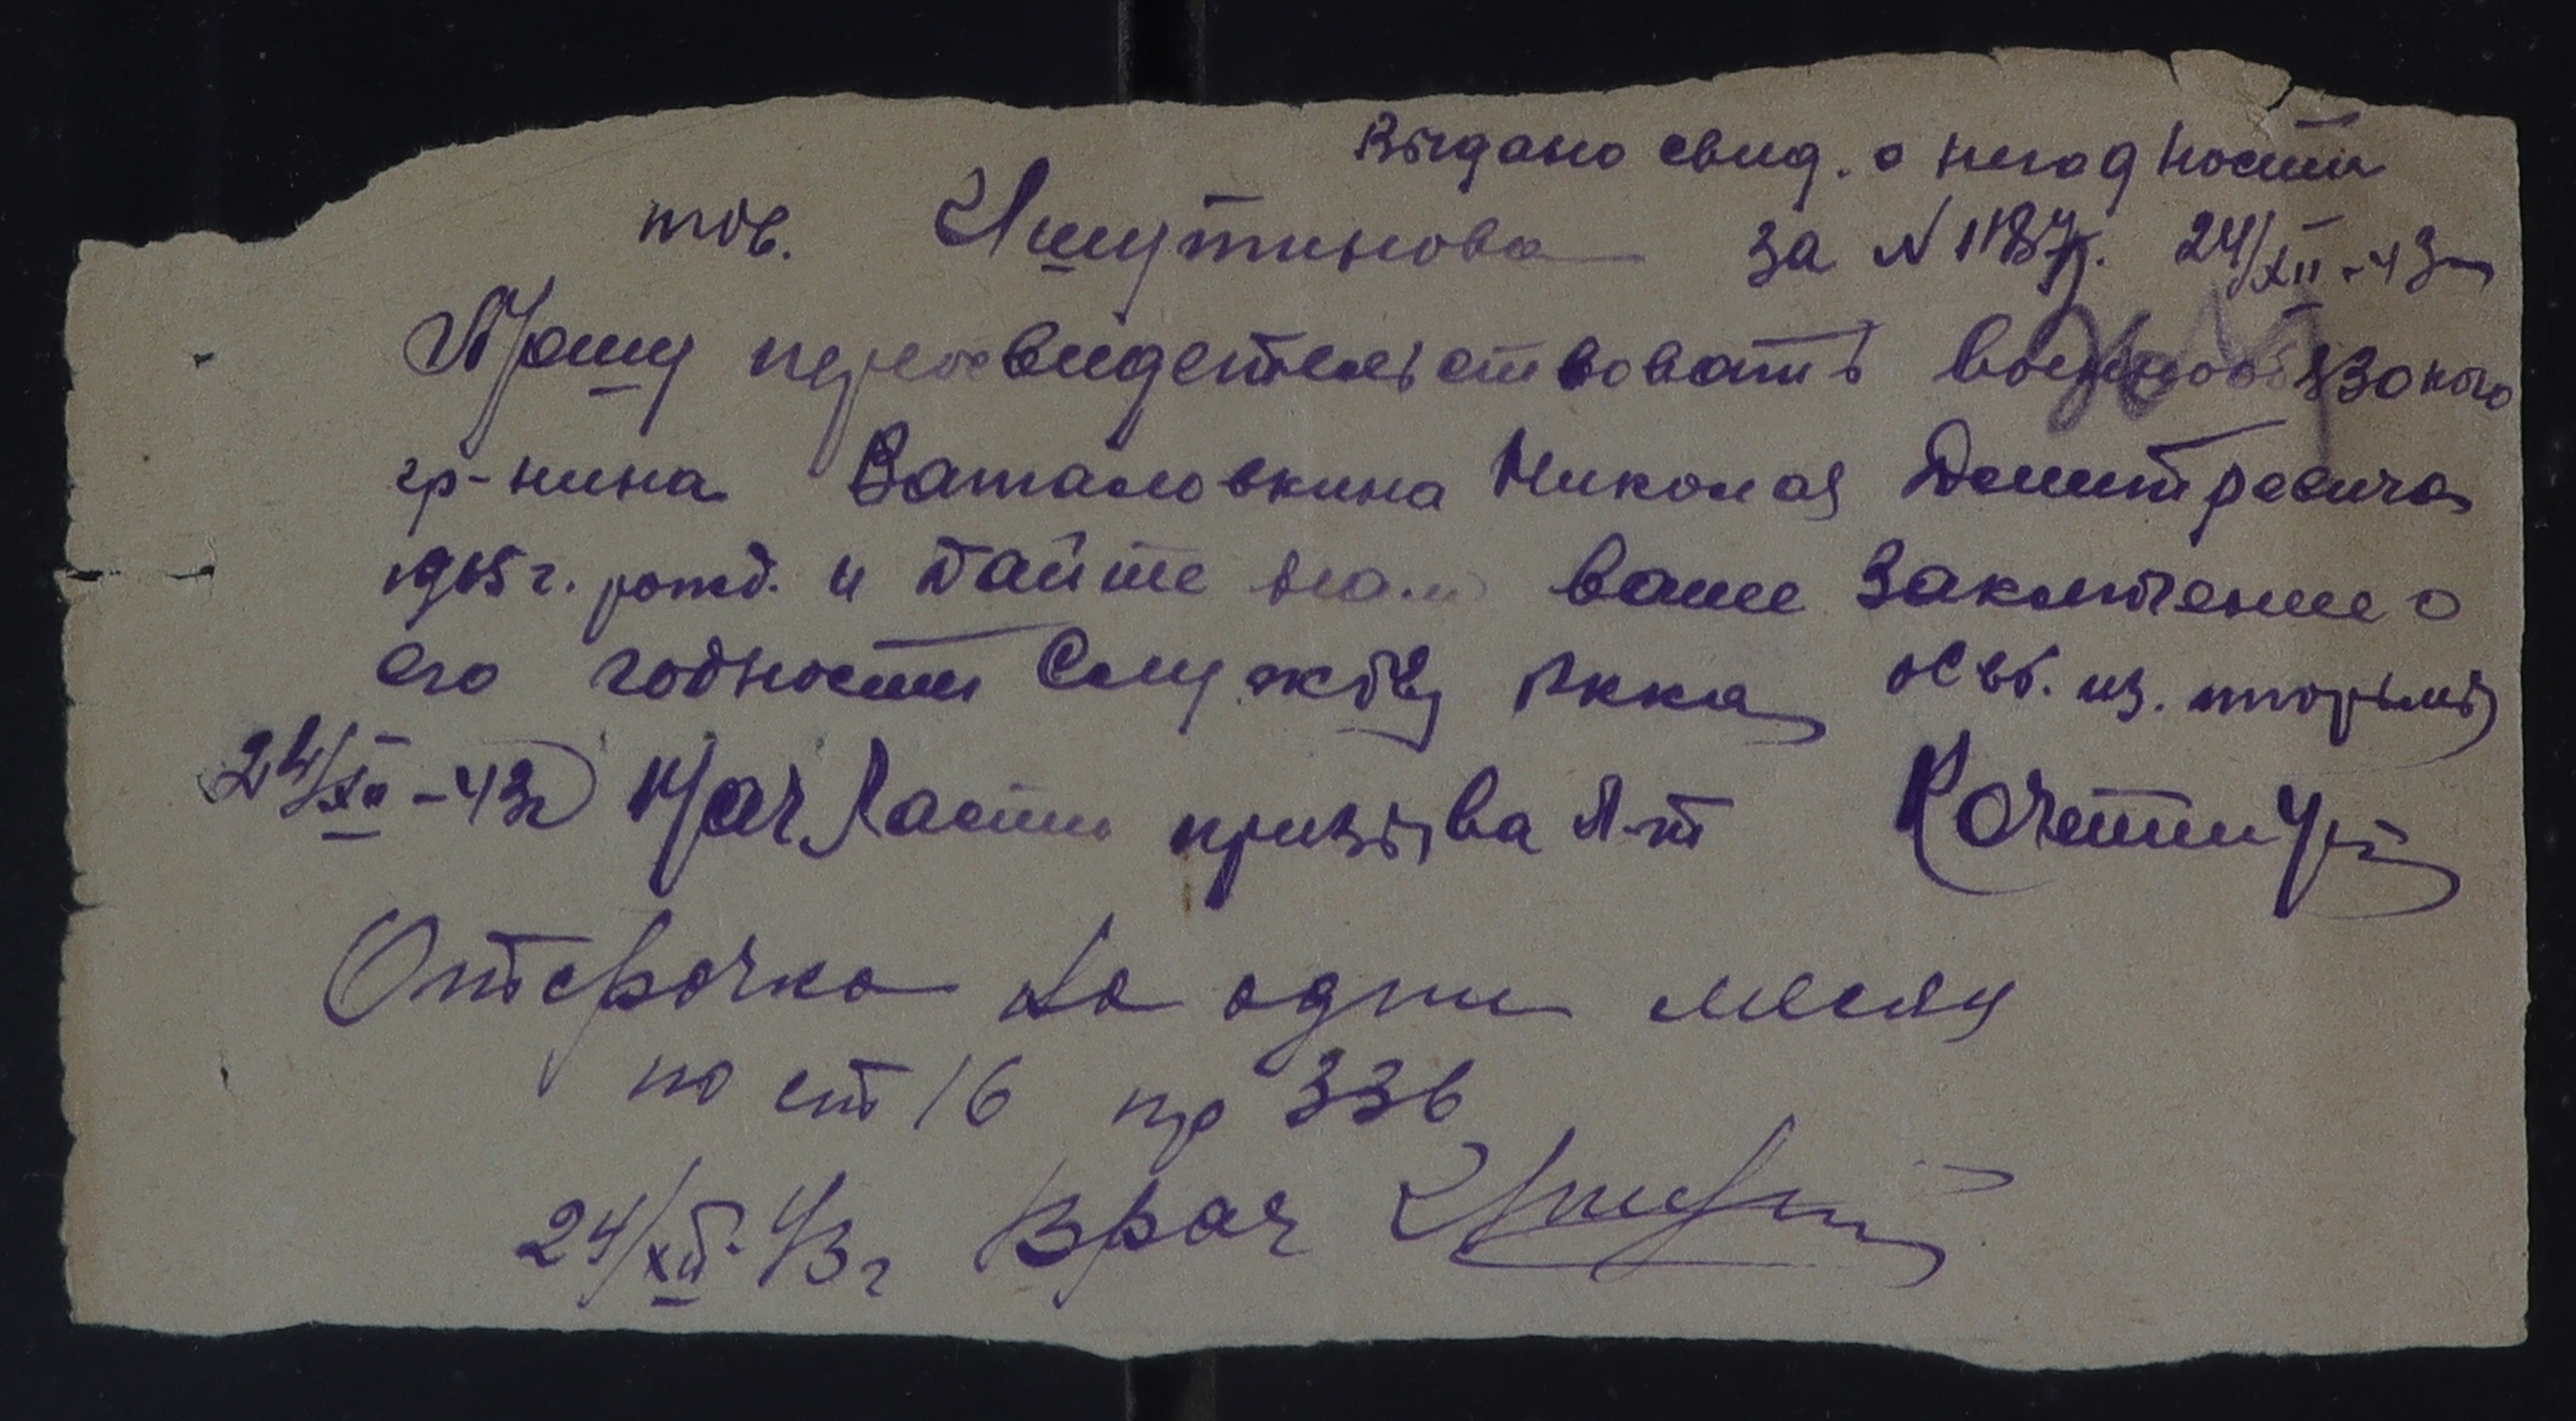 Выдано свид. о негодности
тов. Ишутинова за N 1187. 24/XII-43г
Прошу переосвидетельствовать военнообязоного
гр-нина Ваталовкина Николая Дмитревича
1905 г. рожд. и дайте нам ваше заключение о
его годности службы Ркка осв. из. тюрьмы
24/XII-43г Нач части призыва Л-т
Отсрочка на один месяц
по ст 16 пр 336
24/XII 43г Врач